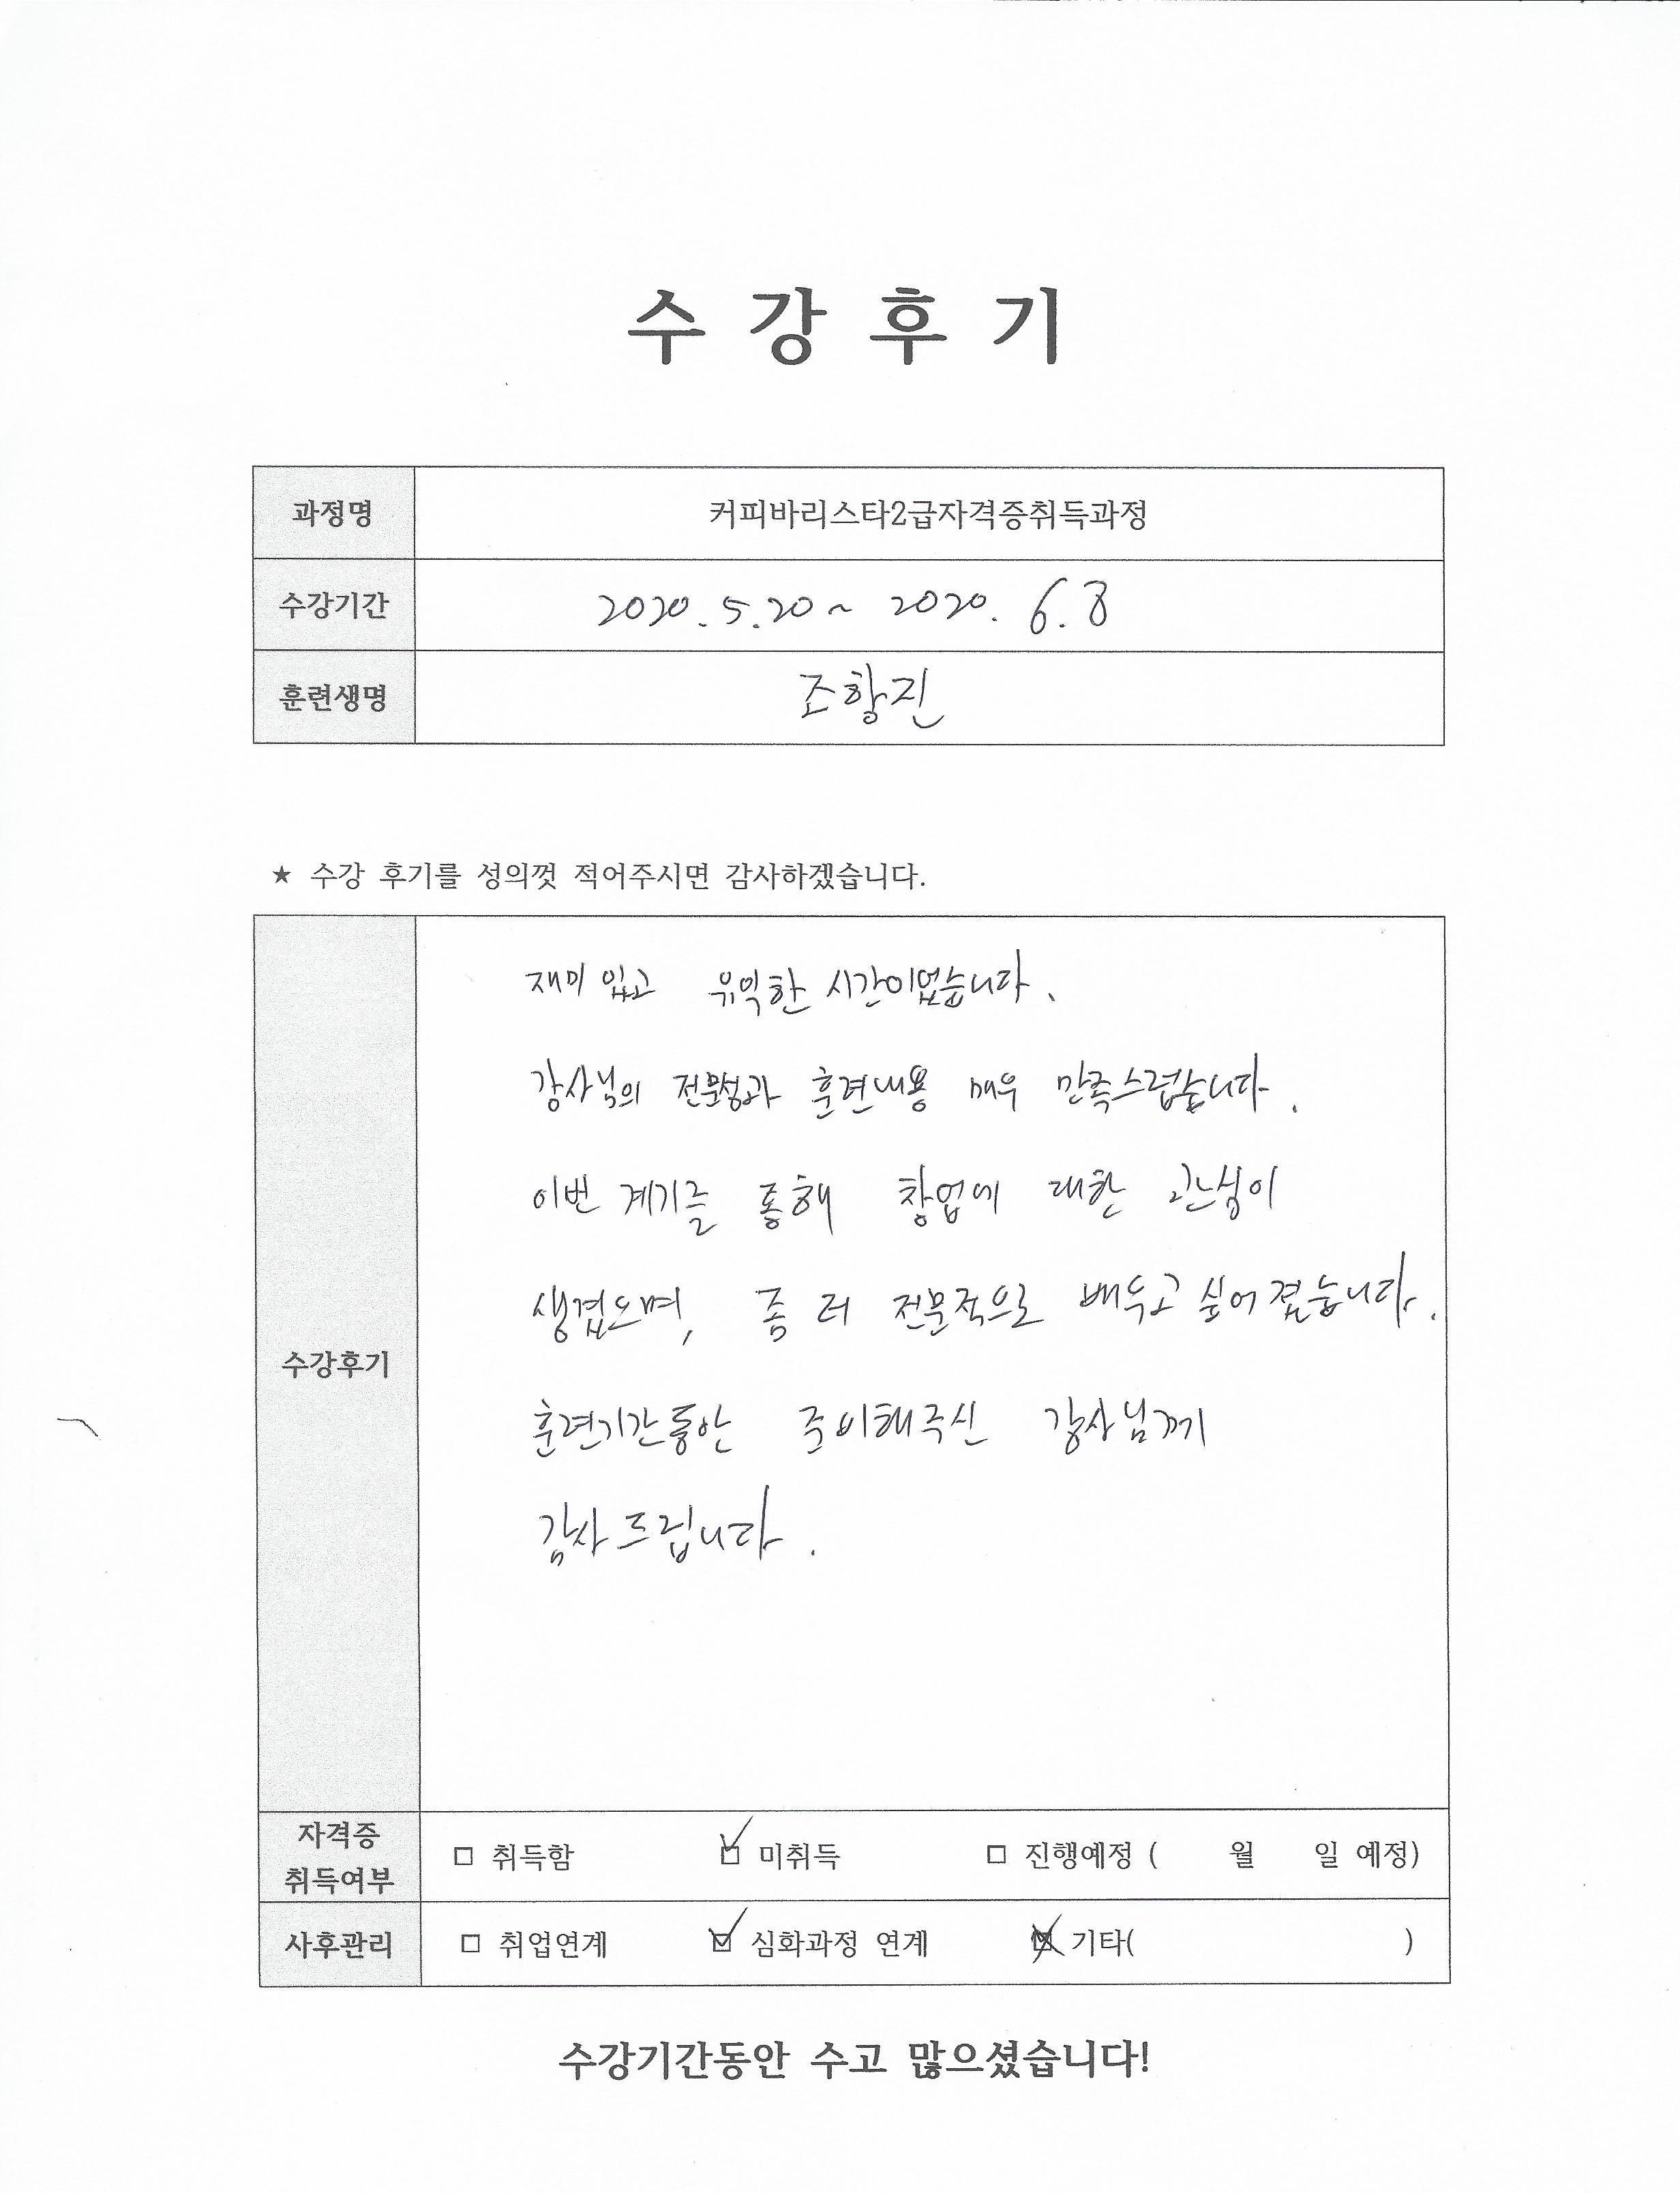 수 강 후 기
과정명 커피바리스타2급자격증취득과정
수강기간 2020. 5. 20 ~ 2020. 6. 8
훈련생명 조항진
★ 수강 후기를 성의껏 적어주시면 감사하겠습니다.
재미 있고 유익한 시간이었습니다.
강사님의 전문성과 훈련내용 매우 만족스럽습니다.
이번 계기를 통해 창업에 대한 관심이
생겼으며, 좀 더 전문적으로 배우고 싶어졌습니다.
수강후기
훈련기간동안 준비해주신 강사님께
감사드립니다.
자격증 취득여부 □ 취득함 ☑ 미취득 □ 진행예정 ( 월 일 예정)
사후관리 □ 취업연계 ☑ 심화과정 연계 ☒ 기타( )
수강기간동안 수고 많으셨습니다!